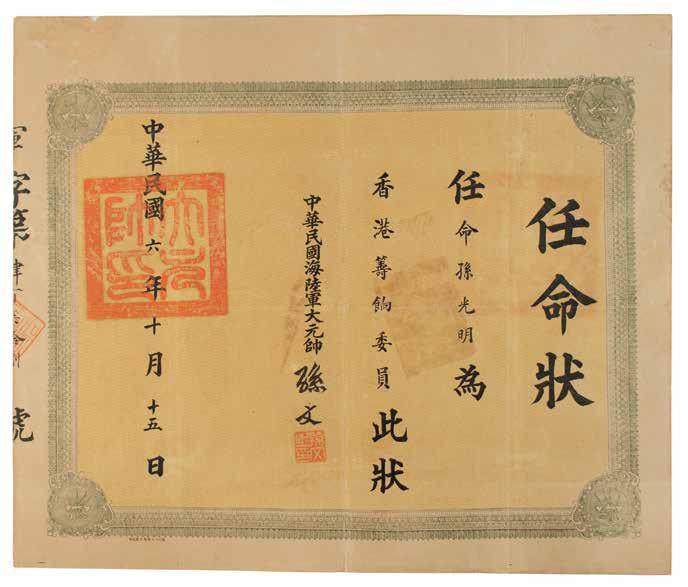 任命狀
任命孫光明為
香港籌餉委員此狀
中華民國海陸軍大元帥 孫文
孫文之印
中華民國六年十月十五日
大元帥印
軍字第肆
號